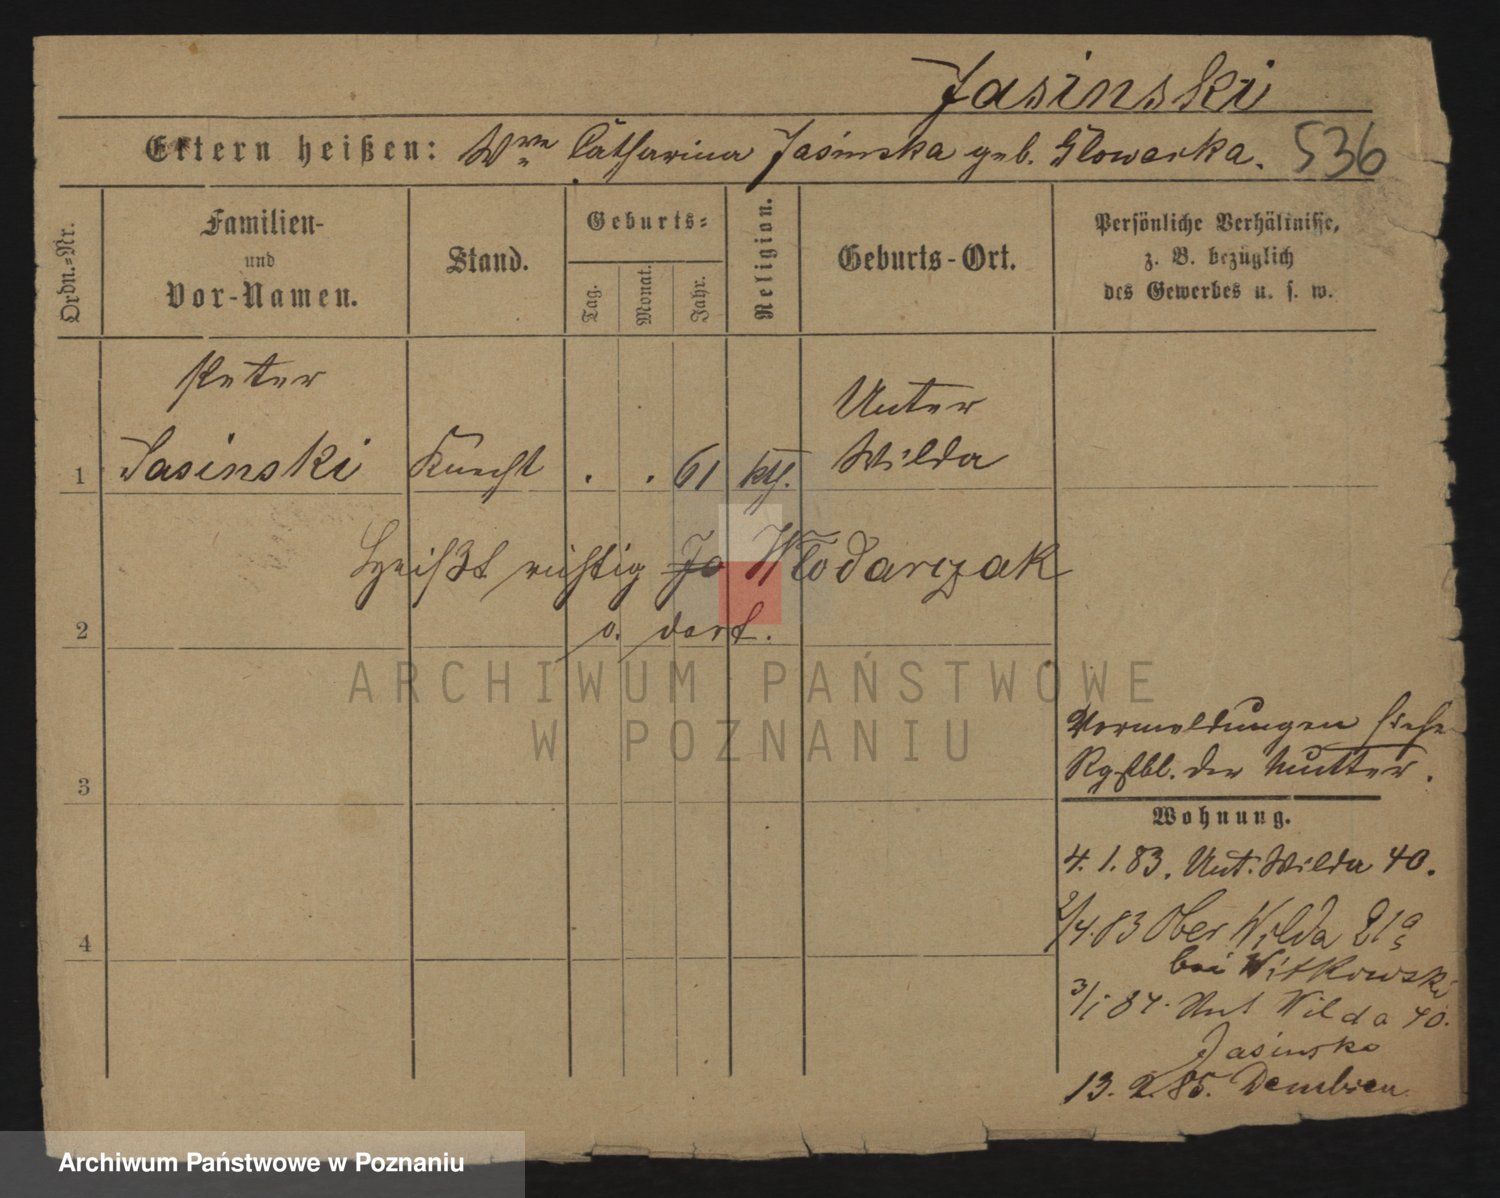 Jasinski
Eltern heißen: Wwe Catharina Jasinska geb. Glowacka. 536
Ordn.-Nr.
Familien-
und
Vor-Namen.
Stand.
Geburts-
Tag.
Monat.
Jahr.
Religion.
Geburts-Ort.
Persönliche Verhältniße,
z. B. bezüglich
des Gewerbes u. s. w.
Peter
Jasinski
1
Knecht
. . 61
kth.
Unter
Wilda
Heißt richtig Ja Włodarczak
2
o. dort.
ARCHIWUM PAŃSTWOWE
W POZNANIU
3
4
Vormeldungen siehe
Rgstbl. der Mutter.
Wohnung.
4.1.83. Unt. Wilda 40.
2/4.83 Ober Wilda 21a
bei Witkowski
3/1 84. Unt Wilda 40.
Jasinska
13.2.85. Dembsen
Archiwum Państwowe w Poznaniu